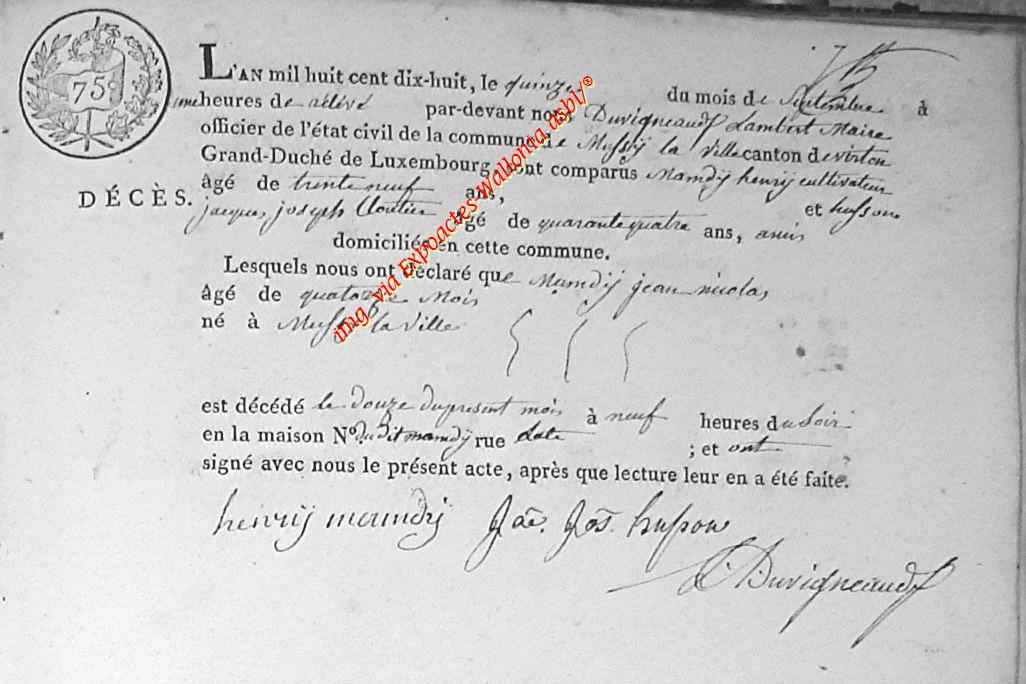 75c
L'AN mil huit cent dix-huit, le quinze du mois de Septembre à
une heures de relevé par-devant nous Duvigneaud Lambert Maire
officier de l'état civil de la commune de Mussy la ville canton de virton
Grand-Duché de Luxembourg sont comparus Mamdy henry cultivateur
DÉCÈS.
âgé de trente neuf ans, et husson
jacques joseph Cloutier âgé de quarante quatre ans, amis
domiciliés en cette commune.
Lesquels nous ont déclaré que Mamdy jean nicolas
âgé de quatorze Mois
né à Mussy la ville
est décédé le douze du present mois à neuf heures du Soir
en la maison No. du dit mamdy rue ; et ont
signé avec nous le présent acte, après que lecture leur en a été faite.
henrij mamdij Jac. Jos. husson
L. Duvigneaud
img via Expoactes Wallonia asbl/®